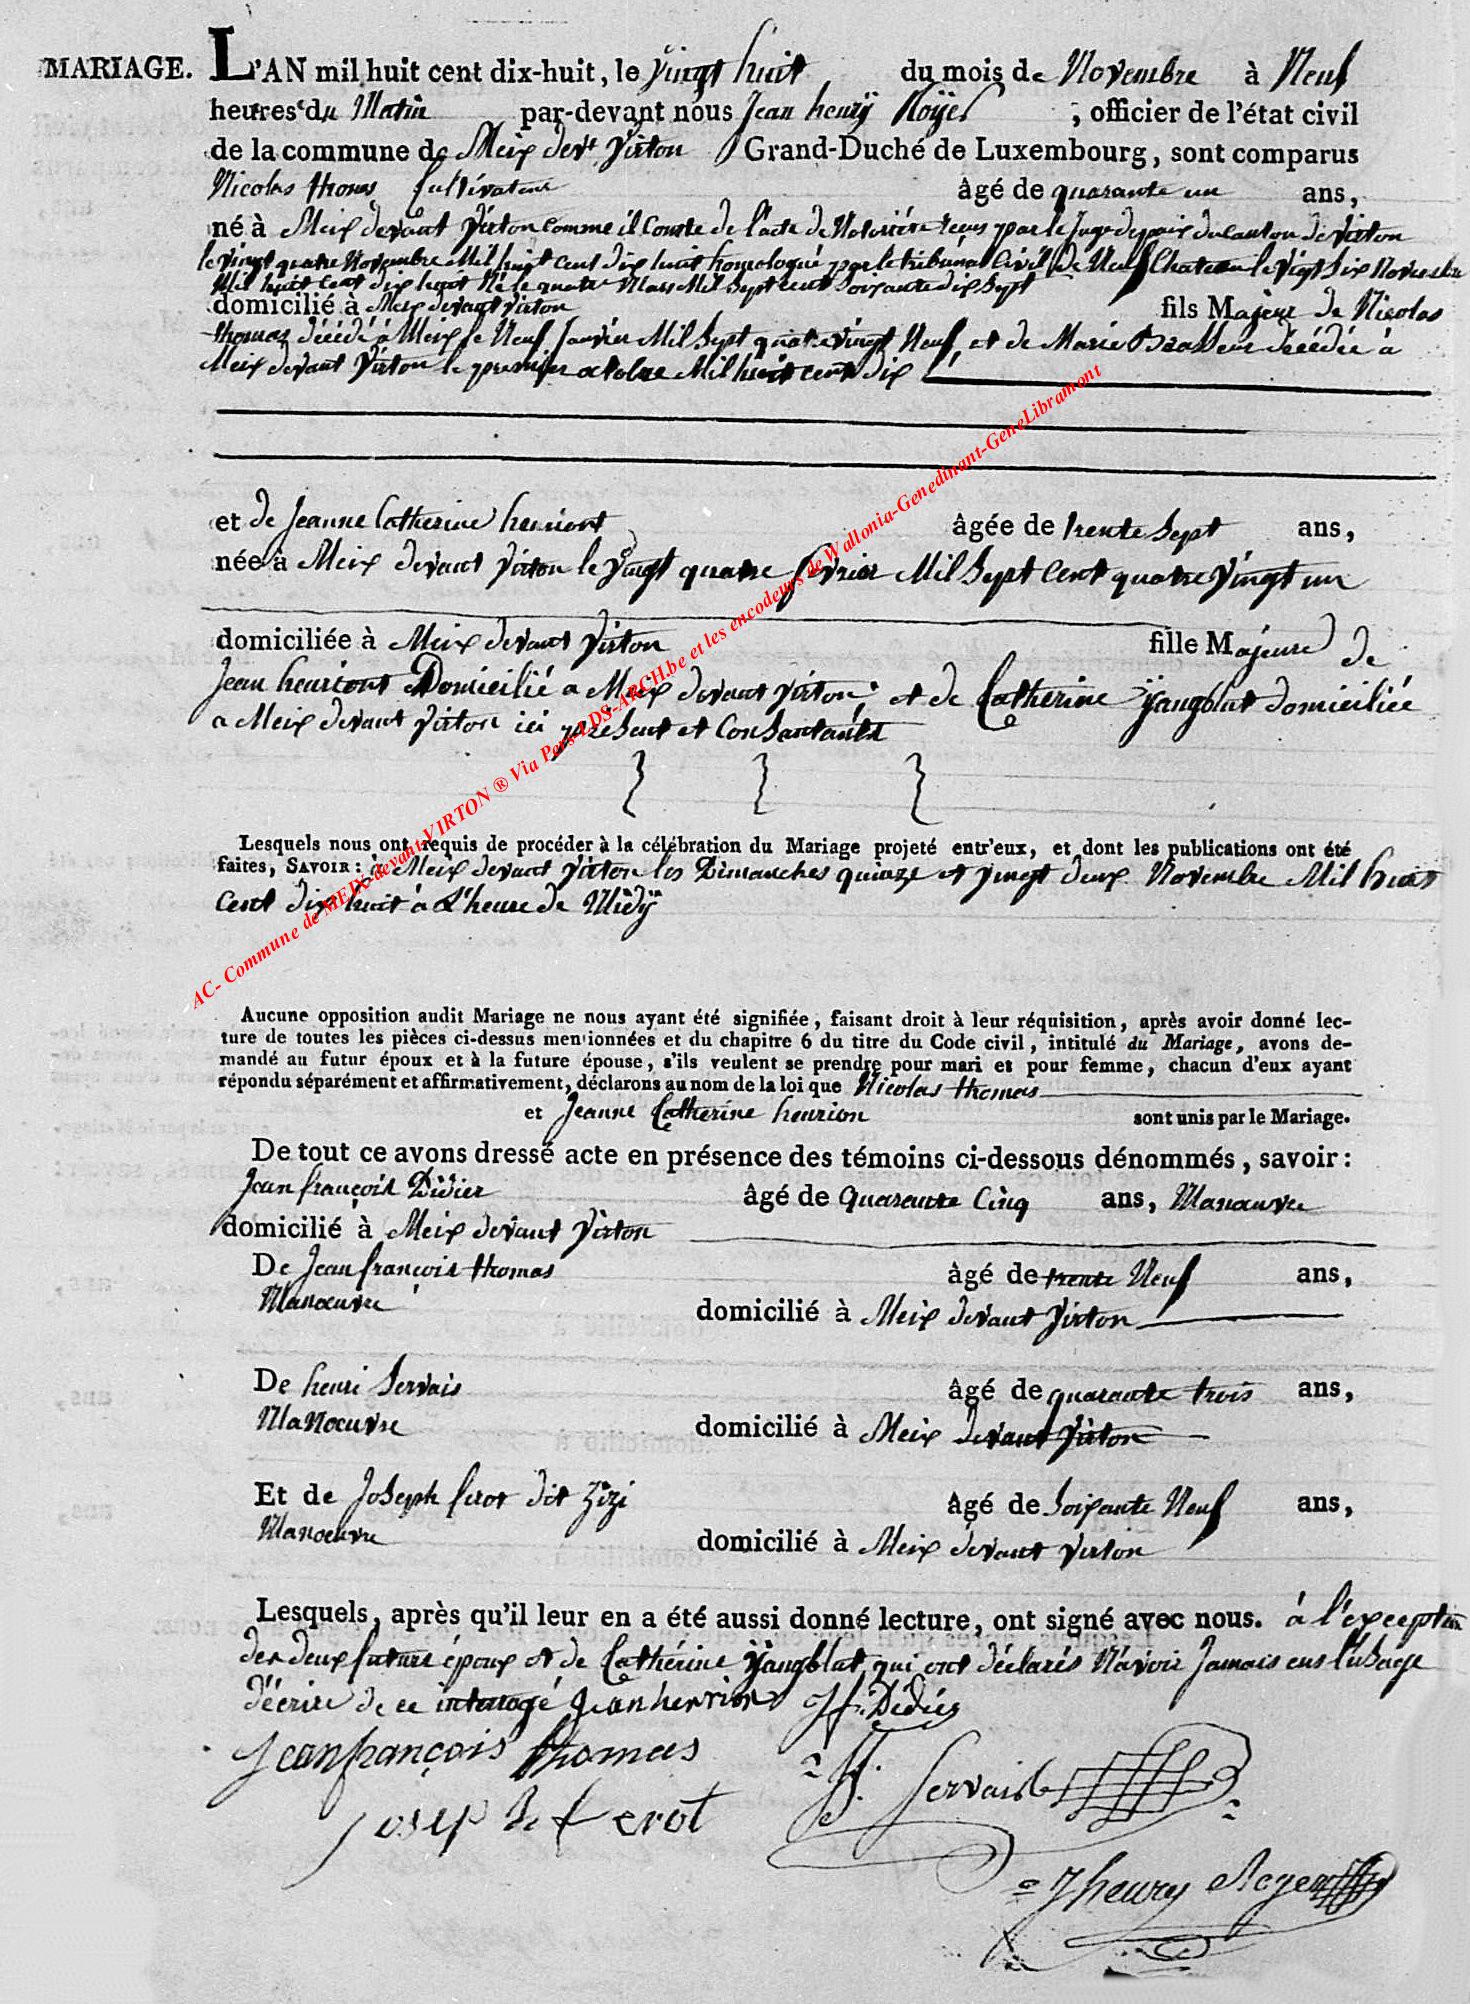 MARIAGE. L'AN mil huit cent dix-huit, le vingt huit du mois de Novembre à Neuf
heures du Matin par-devant nous Jean henrÿ Roÿer, officier de l'état civil
de la commune de Meix devt Virton Grand-Duché de Luxembourg, sont comparus
Nicolas thomas Cultivateur âgé de quarante un ans,
né à Meix devant Virton comme il conste de l'acte de Notoriété reçus par le Juge de paix du canton de Virton
le vingt quatre Novembre Mil huit cent dix huit homologué par le tribunal Civil de Neuf Chateau le vingt Six Novembre
Mil huit cent dix huit Né le quatre Mars Mil Sept cent Soixante dix Sept
domicilié à Meix devant virton fils Majeur de Nicolas
thomas décédé à Meix le Neuf Janvier Mil Sept quatre vingt Neuf, et de Marie Brasseur décédée à
Meix devant Virton le premier octobre Mil huit cent dix
et de Jeanne Catherine henriont âgée de trente Sept ans,
née à Meix devant virton le vingt quatre fevrier Mil Sept Cent quatre vingt un
domiciliée à Meix devant Virton fille Majeure de
Jean henriont Domicilié a Meix devant virton, et de Catherine ÿangblut domiciliée
a Meix devant virton ici présent et Consantants
Lesquels nous ont requis de procéder à la célébration du Mariage projeté entr'eux, et dont les publications ont été
faites, SAVOIR: à Meix devant virton les Dimanches quinze et vingt deux Novembre Mil huit
cent dix huit à L'heure de Midÿ
Aucune opposition audit Mariage ne nous ayant été signifiée, faisant droit à leur réquisition, après avoir donné lec-
ture de toutes les pièces ci-dessus mentionnées et du chapitre 6 du titre du Code civil, intitulé du Mariage, avons de-
mandé au futur époux et à la future épouse, s'ils veulent se prendre pour mari et pour femme, chacun d'eux ayant
répondu séparément et affirmativement, déclarons au nom de la loi que Nicolas thomas
et Jeanne Catherine henrion sont unis par le Mariage.
De tout ce avons dressé acte en présence des témoins ci-dessous dénommés, savoir:
Jean françois Didier âgé de quarante Cinq ans, Manauvre
domicilié à Meix devant Virton
De Jean françois thomas âgé de trente Neuf ans,
Manœuvre domicilié à Meix devant Virton
De henri Servais âgé de quarante trois ans,
Manœuvre domicilié à Meix devant Virton
Et de Joseph ferot dit Zizi âgé de Soixante Neuf ans,
Manœuvre domicilié à Meix devant virton
Lesquels, après qu'il leur en a été aussi donné lecture, ont signé avec nous. à l'exception
des deux future époux et de Catherine ÿangblut qui ont déclarés N'avoir Jamais eus l'usage
d'écrire de ce interrogé Jean henrion Jf: Didier
Jeanfrançois thomas
H. Servais
Joseph ferot
J henry Royer
AC- Commune de MEIX-devant-VIRTON ® Via Pers-LDS-ARCH.be et les encodeurs de Wallonia-Genedinant-GeneLibramont